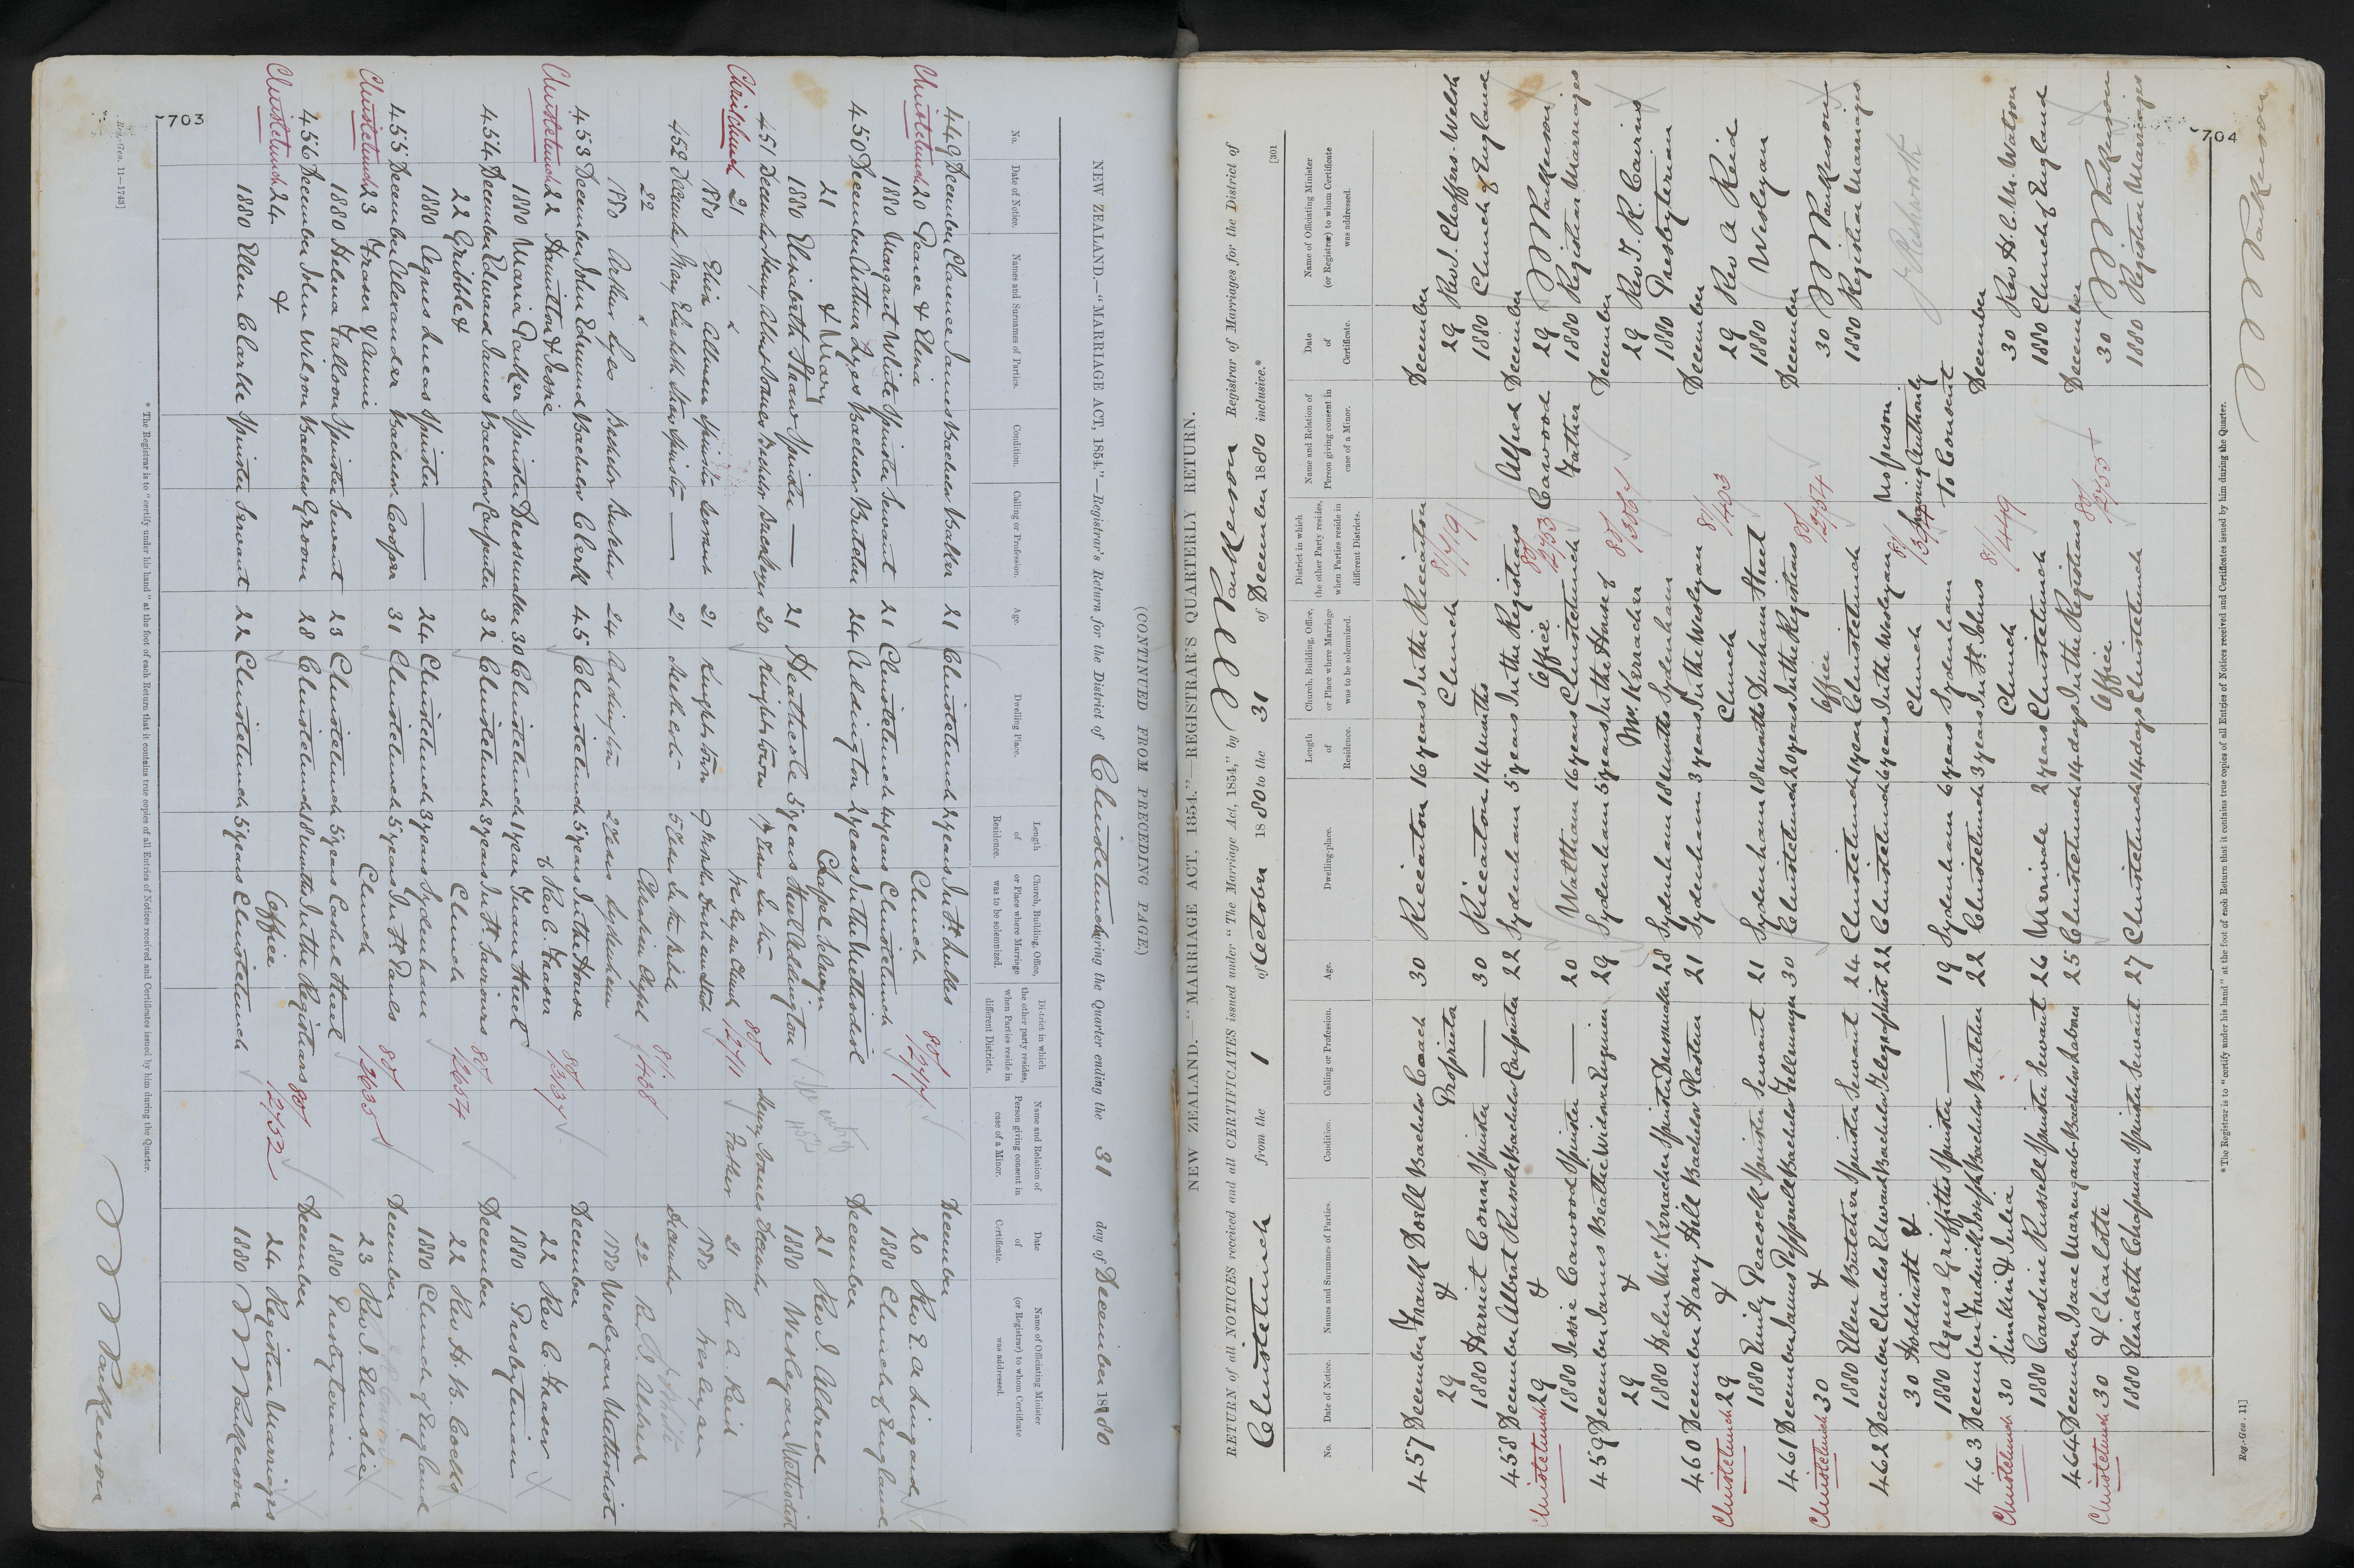 703
(CONTINUED FROM PRECEDING PAGE)
NEW ZEALAND.—"MARRIAGE ACT, 1854."—Registrar's Return for the District of Christchurch during the Quarter ending the 31 day of December 1880
No.
Date of Notice.
Names and Surnames of Parties.
Condition.
Calling or Profession.
Age.
Dwelling Place.
Length of Residence.
Church, Building, Office, or Place where Marriage was to be solemnized.
District in which the other party resides, when Parties reside in different Districts.
Name and Relation of Person giving consent in case of a Minor.
Date of Certificate.
Name of Officiating Minister (or Registrar) to whom Certificate was addressed.
449 December Clarence James Bachelor Baker 21 Christchurch 2 years In St Lukes December
Christchurch 20 Pearce & Eliza Church 80/2717 20 Rev E. A. Lingard
1880 Margaret White Spinster Servant 21 Christchurch 4 years Christchurch 1880 Church of England
450 December Arthur Dyes Bachelor Butcher 24 Addington 2 years In the Methodist December
21 & Mary Chapel Selwyn 21 Rev J. Aldred
1880 Elizabeth Shaw Spinster — 21 Heathcote 5 years Street Addington 1880 Wesleyan Methodist
451 December Henry Albert Jones Bachelor 20 Knightstown In the Henry Jones December
Christchurch 21 & Wesleyan Church 80/2711 Father 21 Rev A Reid
1880 Eliza Spinster Servant 21 Knightstown 9 Months Durham Street 1880 Wesleyan
452 December Mary Elizabeth Spinster — 21 5 years In the Bible December
22 & Christian Chapel 81/438 22 Rev Aldred
1880 Arthur Lees Bachelor Butcher 24 Addington 2 years Sydenham 1880 Wesleyan Methodist
453 December John Edmund Bachelor Clerk 45 Christchurch 5 years In the House December
Christchurch 22 Hamilton & Jessie of Rev C. Fraser 80/3137 22 Rev C. Fraser
1880 Maria Parker Spinster Dressmaker 30 Christchurch 1 year Tuam Street 1880 Presbyterian
454 December Edward James Bachelor Carpenter 32 Christchurch 3 years In St Saviours December
22 Gribble & Church 80/2654 22 Rev H. B. Cocks
1880 Agnes Lucas Spinster — 24 Christchurch 3 years Sydenham 1880 Church of England
455 December Alexander Bachelor Cooper 31 Christchurch 5 years In St Pauls December
Christchurch 23 Fraser & Annie Church 80/2635 23 Rev J. Elmslie
1880 Helena Falloon Spinster Servant 23 Christchurch 5 years Cashel Street 1880 Presbyterian
456 December John Wilson Bachelor Groom 28 Christchurch 18 months In the Registrars December
Christchurch 24 & Office 80/2752 24 Registrar Marriages
1880 Ellen Clarke Spinster Servant 22 Christchurch 5 years Christchurch 1880
* The Registrar is to "certify under his hand" at the foot of each Return that it contains true copies of all Entries of Notices received and Certificates issued by him during the Quarter.
Reg.-Gen. 11—1743]
704
[301
NEW ZEALAND.—"MARRIAGE ACT, 1854."—REGISTRAR'S QUARTERLY RETURN.
RETURN of all NOTICES received and all CERTIFICATES issued under "The Marriage Act, 1854," by Registrar of Marriages for the District of
Christchurch from the 1 of October 1880 to the 31 of December 1880 inclusive.*
No.
Date of Notice.
Names and Surnames of Parties.
Condition.
Calling or Profession.
Age.
Dwelling-place.
Length of Residence.
Church, Building, Office, or Place where Marriage was to be solemnized.
District in which the other Party resides, when Parties reside in different Districts.
Name and Relation of Person giving consent in case of a Minor.
Date of Certificate.
Name of Officiating Minister (or Registrar) to whom Certificate was addressed.
457 December Frank Doell Bachelor Coach 30 Riccarton 16 years In the Riccarton December
29 & Proprietor Church 81/479 29 Rev J. Chaffers-Welsh
1880 Harriet Conn Spinster — 30 Riccarton 14 months 1880 Church of England
458 December Albert Russell Bachelor Carpenter 22 Sydenham 5 years In the Registrars Alfred December
Christchurch 29 & Office 80/2733 Cawood 29
1880 Jessie Cawood Spinster — 20 Waltham 16 years Christchurch Father 1880 Registrar Marriages
459 December James Beattie Widower Engineer 29 Sydenham 5 years In the House of December
29 & Mr. Kerracher 29 Rev J. R. Cairns
1880 Helen McKerracher Spinster Dressmaker 28 Sydenham 18 months Sydenham 1880 Presbyterian
460 December Harry Hill Bachelor Plasterer 21 Sydenham 3 years In the Wesleyan December
Christchurch 29 & Church 81/403 29 Rev A Reid
1880 Emily Peacock Spinster Servant 21 Sydenham 18 months Durham Street 1880 Wesleyan
461 December James Bachelor 30 Christchurch 20 years In the Registrars December
Christchurch 30 & Office 80/2734 30
1880 Ellen Butcher Spinster Servant 24 Christchurch 1 year Christchurch 1880 Registrar Marriages
462 December Charles Edward Bachelor Telegraphist 22 Christchurch 6 years In the Wesleyan No person
30 Hoddinott & Church having authority
1880 Agnes Griffiths Spinster — 19 Sydenham 6 years Sydenham to Consent
463 December Friedrich Joseph Bachelor Butcher 22 Christchurch 3 years In St. Johns December
Christchurch 30 Simkin & Julia Church 81/449 30 Rev H. C. M. Watson
1880 Caroline Russell Spinster Servant 26 Merivale 2 years Christchurch 1880 Church of England
464 December Isaac Bachelor Labour 25 Christchurch 14 days In the Registrars December
Christchurch 30 & Charlotte Office 80/2755 30
1880 Elizabeth Spinster Servant 27 Christchurch 14 days Christchurch 1880 Registrar Marriages
* The Registrar is to "certify under his hand" at the foot of each Return that it contains true copies of all Entries of Notices received and Certificates issued by him during the Quarter.
Reg.-Gen. 11]